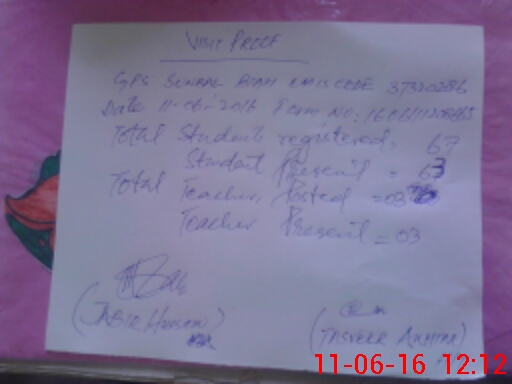 VISIT PROOF
GPS SUNBAL BIAH EMIS CODE 37320286
Date 11-06-2016 Form NO:
Total Students registered = 67
Student Present = 63
Total Teacher, Posted = 03
Teacher Present = 03
(JABIR HUSSAIN)
(TASVEER AKHTAR)
11-06-16 12:12